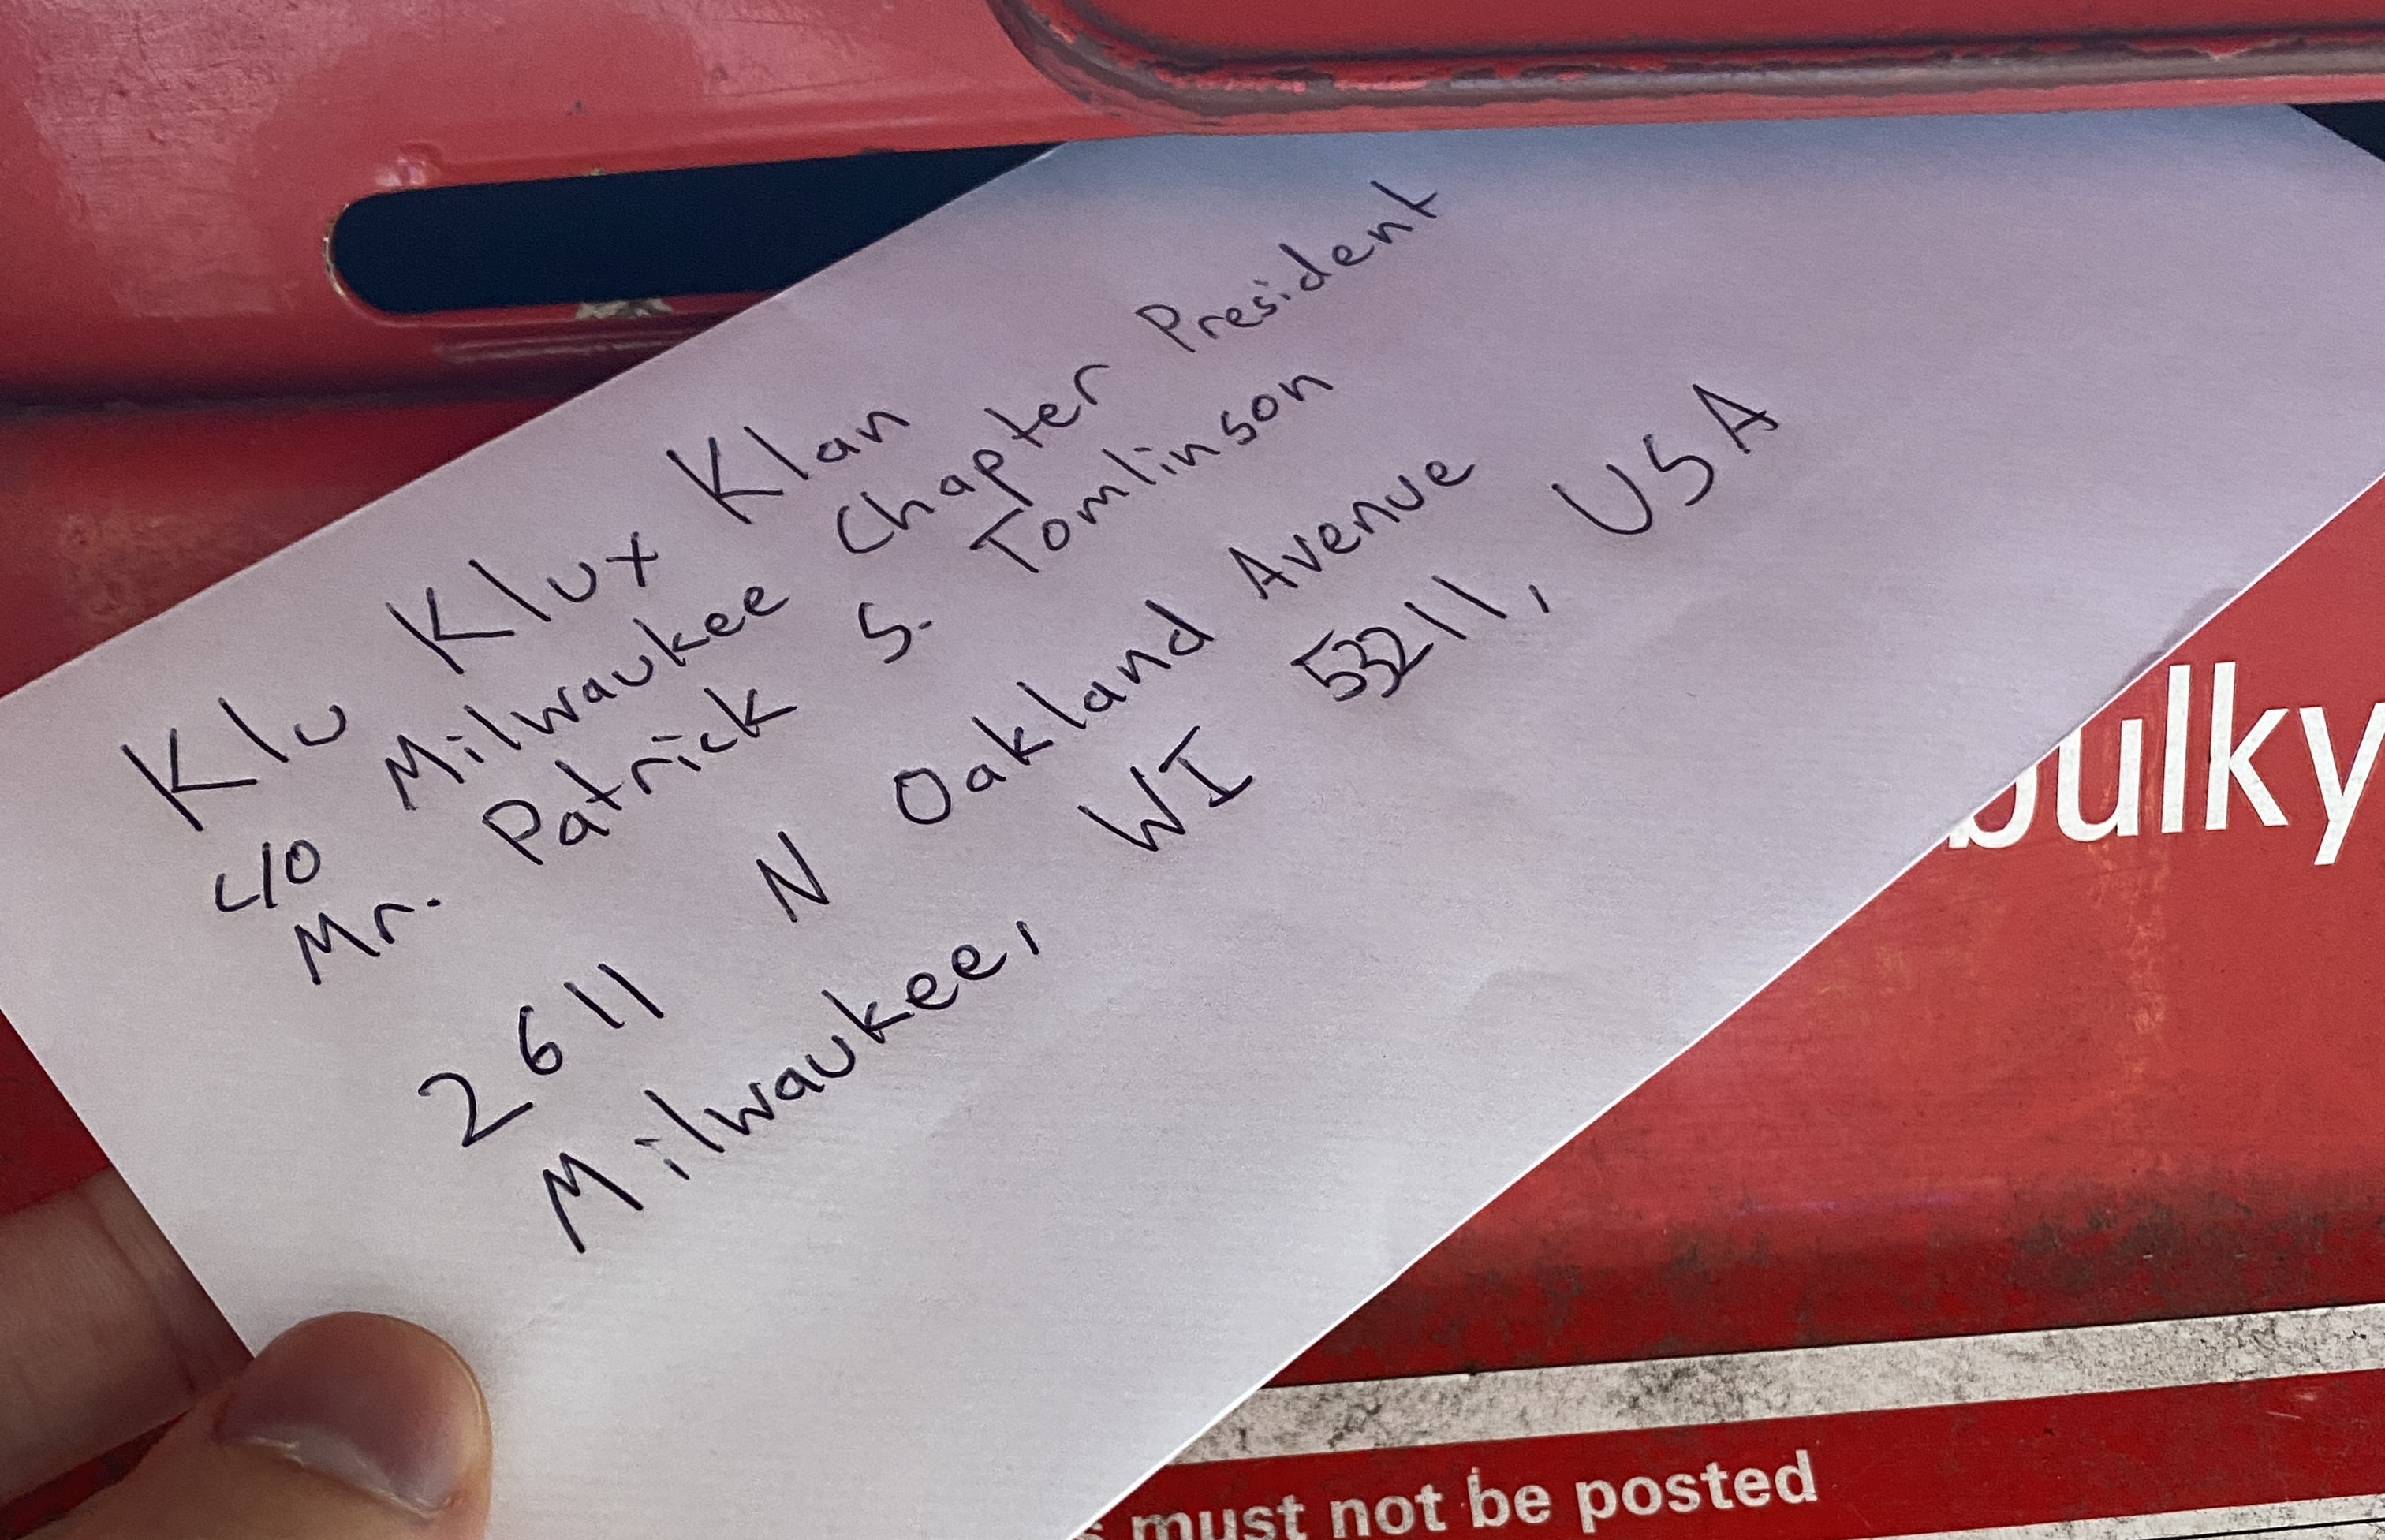 Klu Klux Klan
c/o Milwaukee Chapter President
Mr. Patrick S. Tomlinson
2611 N Oakland Avenue
Milwaukee, WI 53211, USA
bulky
must not be posted